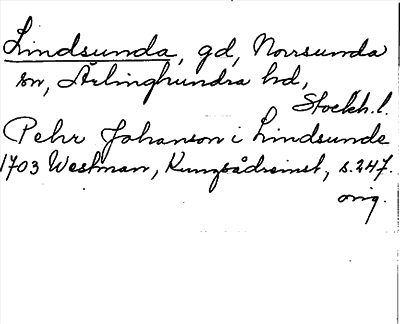 Lindsunda, gd, Norrsunda
sn, Ärlinghundra hd,
Stockh.l.
Pehr Johanson i Lindsunde
1703 Westman, Kungsådreinst, s. 247.
orig.